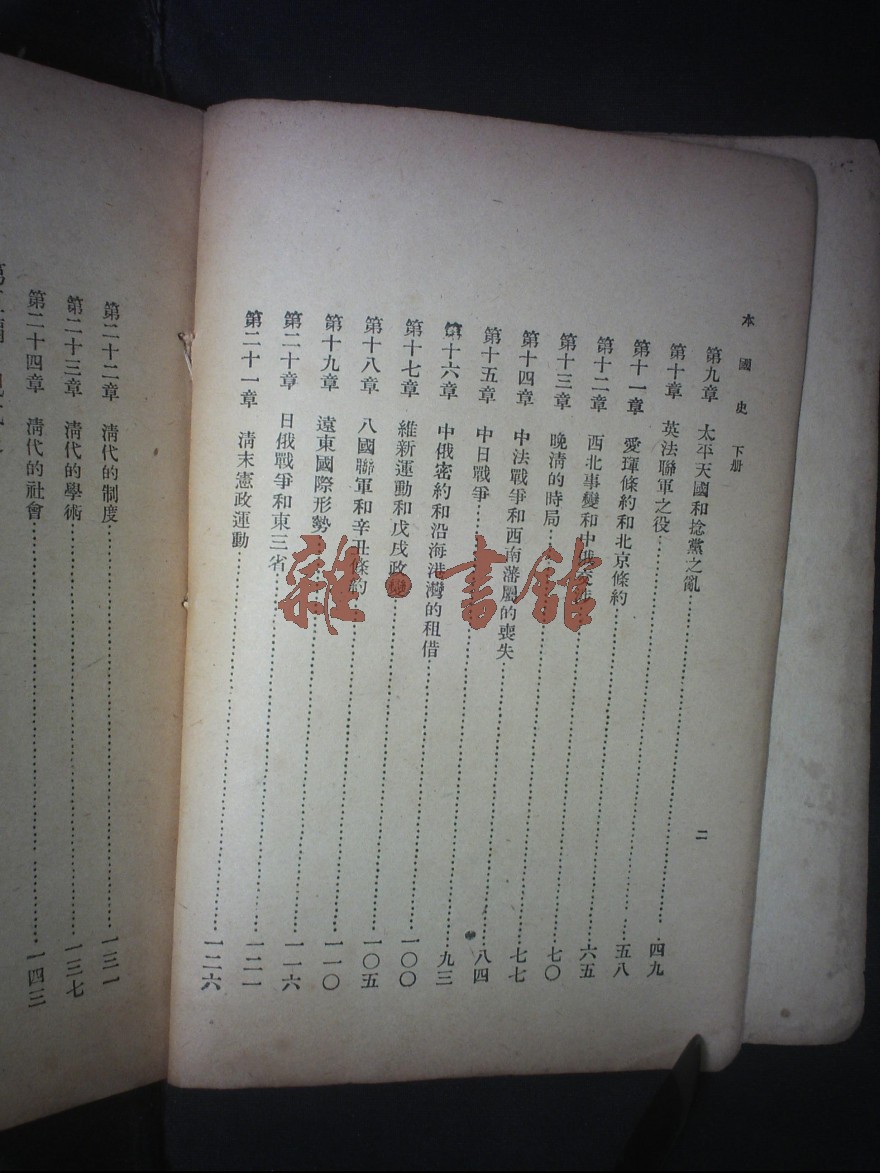 本國史 下册
二
第九章 太平天國和捻黨之亂……四九
第十章 英法聯軍之役……五八
第十一章 愛琿條約和北京條約……六五
第十二章 西北事變和中俄交涉……七〇
第十三章 晚清的時局……七七
第十四章 中法戰爭和西南藩屬的喪失……八四
第十五章 中日戰爭……九三
第十六章 中俄密約和沿海港灣的租借……一〇〇
第十七章 維新運動和戊戌政……一〇五
第十八章 八國聯軍和辛丑條約……一一〇
第十九章 遠東國際形勢……一一六
第二十章 日俄戰爭和東三省……一二一
第二十一章 清末憲政運動……一二六
第二十二章 清代的制度……一三一
第二十三章 清代的學術……一三七
第二十四章 清代的社會……一四三
雜·書館